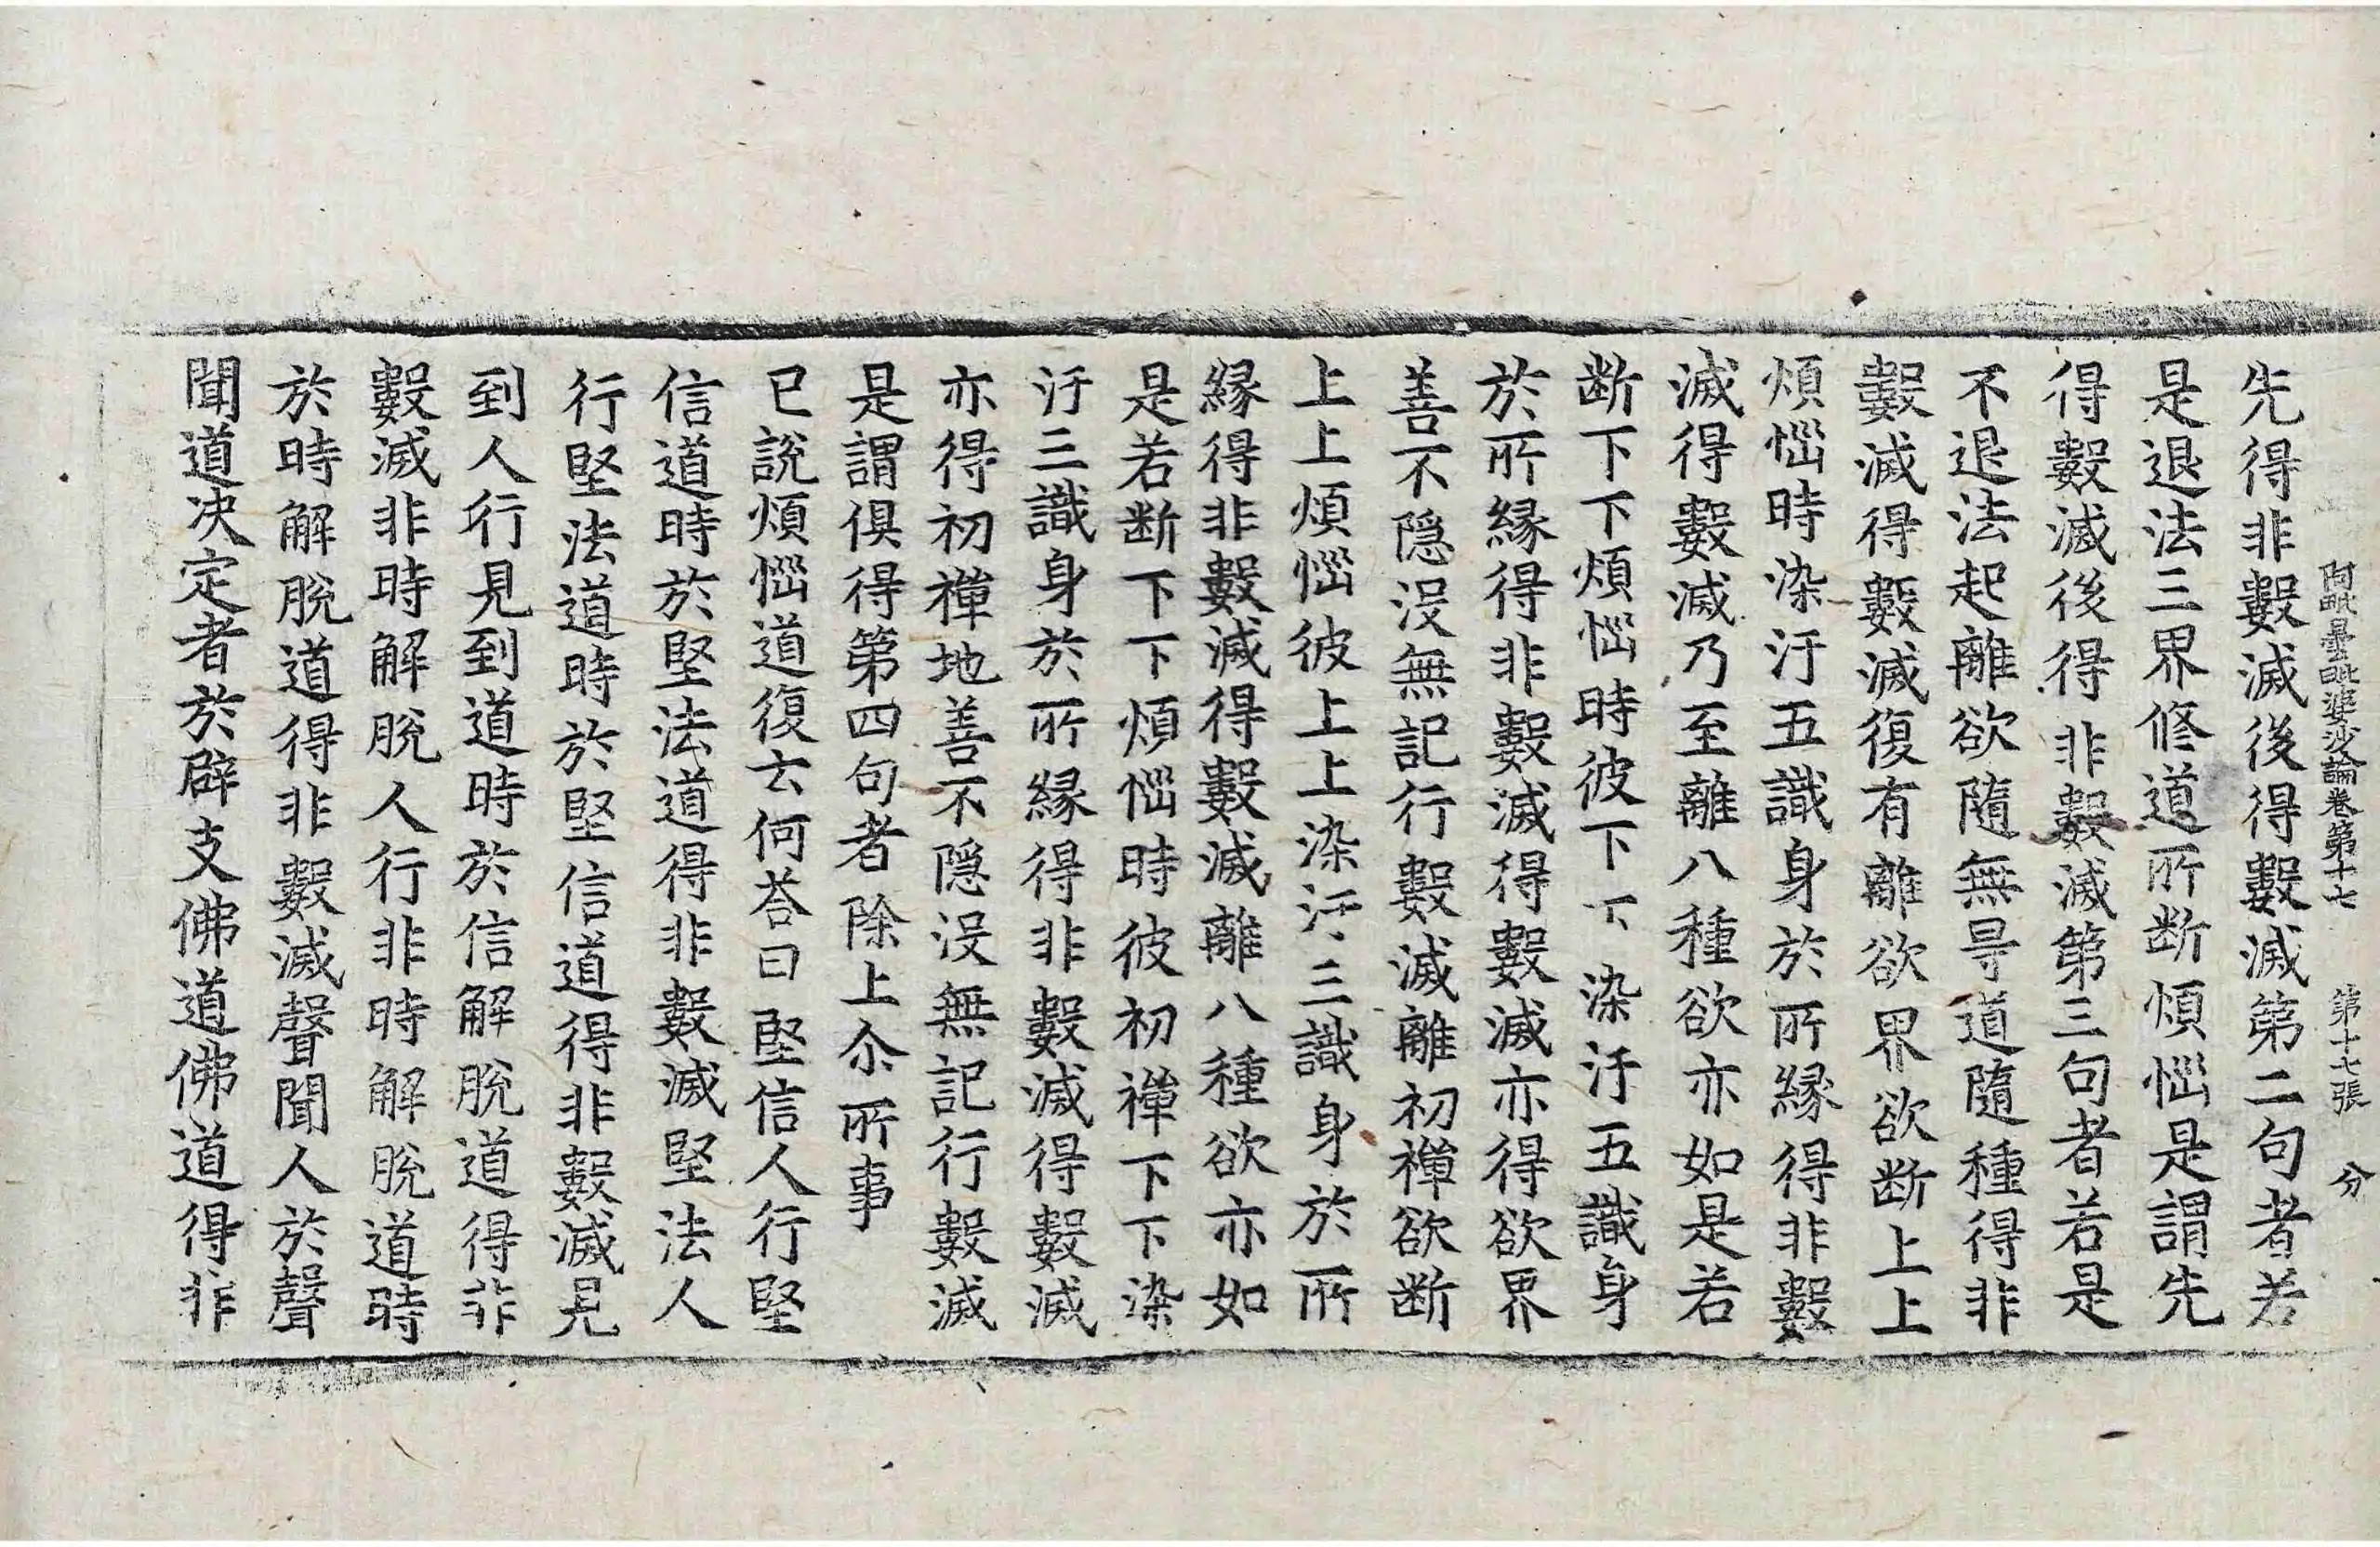 阿毗曇毗婆沙論卷第十七　第十七張　分
先得非數滅後得數滅第二句者若
是退法三界修道所斷煩惱是謂先
得數滅後得非數滅第三句者若是
不退法起離欲隨無㝵道隨種得非
數滅得數滅復有離欲界欲断上上
煩惱時染汙五識身於所緣得非數
滅得數滅乃至離八種欲亦如是若
断下下煩惱時彼下下染汙五識身
於所緣得非數滅得數滅亦得欲界
善不隱没無記行數滅離初禪欲断
上上煩惱彼上上染汙三識身於所
緣得非數滅得數滅離八種欲亦如
是若断下下煩惱時彼初禪下下染
汙三識身於所緣得非數滅得數滅
亦得初禪地善不隱没無記行數滅
是謂俱得第四句者除上尒所事
已說煩惱道復云何荅曰堅信人行堅
信道時於堅法道得非數滅堅法人
行堅法道時於堅信道得非數滅見
到人行見到道時於信解脫道得非
數滅非時解脫人行非時解脫道時
於時解脫道得非數滅聲聞人於聲
聞道决定者於辟支佛道佛道得非